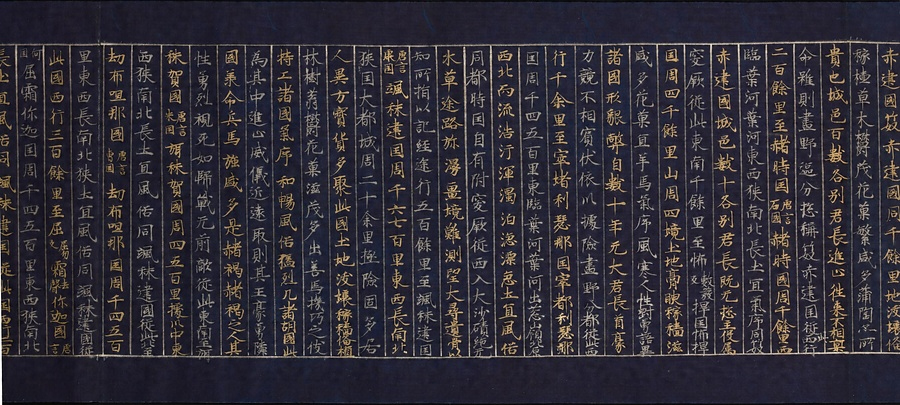 赤建國笯赤建國周千餘里地沃壤備
稼穡草木欝茂花菓繁盛多蒲陶亦所
貴也城邑百數各別君長進止往來不相稟
命雖則畫野區分捴稱笯赤建國從此西行
二百餘里至赭時国唐言石國赭時國周千餘里西
臨葉河葉河東西狹南北長土宜氣序同笯
赤建國城邑數十各別君長既无捴主役属
突厥從此東南千餘里至怖敷發反捍国怖捍
國周四千餘里山周四境土地膏腴稼穡滋
盛多花菓宜羊馬氣序風寒人性剛勇語異
諸國形貌醜弊自數十年无大君長酋豪
力競不相賓伏依川據險畫野分都從此西
行千余里至窣堵利瑟那国窣都利瑟那
国周千四五百里東臨葉河葉河出葱嶺北
西北而流浩汗渾濁汩淴漂急土宜風俗
同都時国自有附突厥從西入大沙磧絕无
水草途路弥漫壃境難測望大山尋遺骨以
知所指以記經途行五百餘里至颯秣建国
唐言康国颯秣建国周千六七百里東西長南北
狹国大都城周二十余里極險固多居
人異方寶貨多聚此國土地沃壤稼穡俻植
林樹蓊欝花菓滋茂多出善馬機巧之伎
特工諸國氣序和暢風俗猛烈凡諸胡國此
為其中進止威儀近遠取則其王豪勇隣
國承命兵馬強盛多是赭褐赭褐之人其
性勇烈視死如歸戰无前敵從此東南至弭
秣賀國唐言米国弭秣賀國周四五百里據川中東
西狹南北長土宜風俗同颯秣建國從此至
劫布呾那國唐言曹国劫布呾那国周千四五百
里東西長南北狹土宜風俗同颯秣建國從
此國西行三百餘里至屈霜你迦國唐言
何国屈霜你迦国周千四五百里東西狹南北
長土宜風俗同颯秣建国從此国西二百